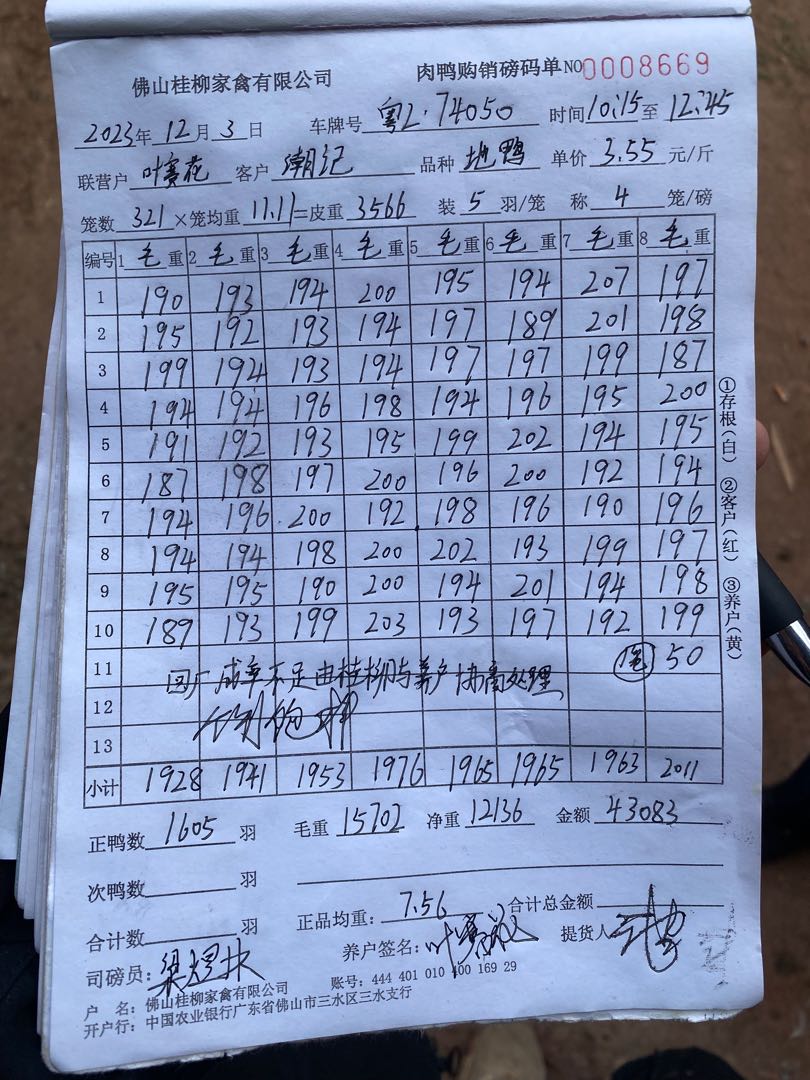 佛山桂柳家禽有限公司 肉鸭购销磅码单 NO 0008669
2023年 12月 3日 车牌号 粤L·74050 时间 10:15 至 12:45
联营户 叶赛花 客户 潮记 品种 地鸭 单价 3.55 元/斤
笼数 321 ×笼均重 11.11 =皮重 3566 装 5 羽/笼 称 4 笼/磅
编号 1 毛重 2 毛重 3 毛重 4 毛重 5 毛重 6 毛重 7 毛重 8 毛重
1 190 193 194 200 195 194 207 197
2 195 192 193 194 197 189 201 198
3 199 194 193 194 197 197 199 187
4 194 194 196 198 194 196 195 200
5 191 192 193 195 199 202 194 195
6 187 198 197 200 196 200 192 194
7 194 196 200 192 198 196 190 196
8 194 194 198 200 202 193 199 197
9 195 195 190 200 194 201 194 198
10 189 193 199 203 193 197 192 199
11 50
回厂成率不足由桂柳与养户协商处理
12
13
小计 1928 1941 1953 1976 1965 1965 1963 2011
正鸭数 1605 羽 毛重 15702 净重 12136 金额 43083
次鸭数 羽
合计数 羽 正品均重: 7.56 合计总金额
司磅员: 梁煜林 养户签名: 提货人
户 名: 佛山桂柳家禽有限公司 账号: 444 401 010 400 169 29
开户行: 中国农业银行广东省佛山市三水区三水支行
①存根(白) ②客户(红) ③养户(黄)